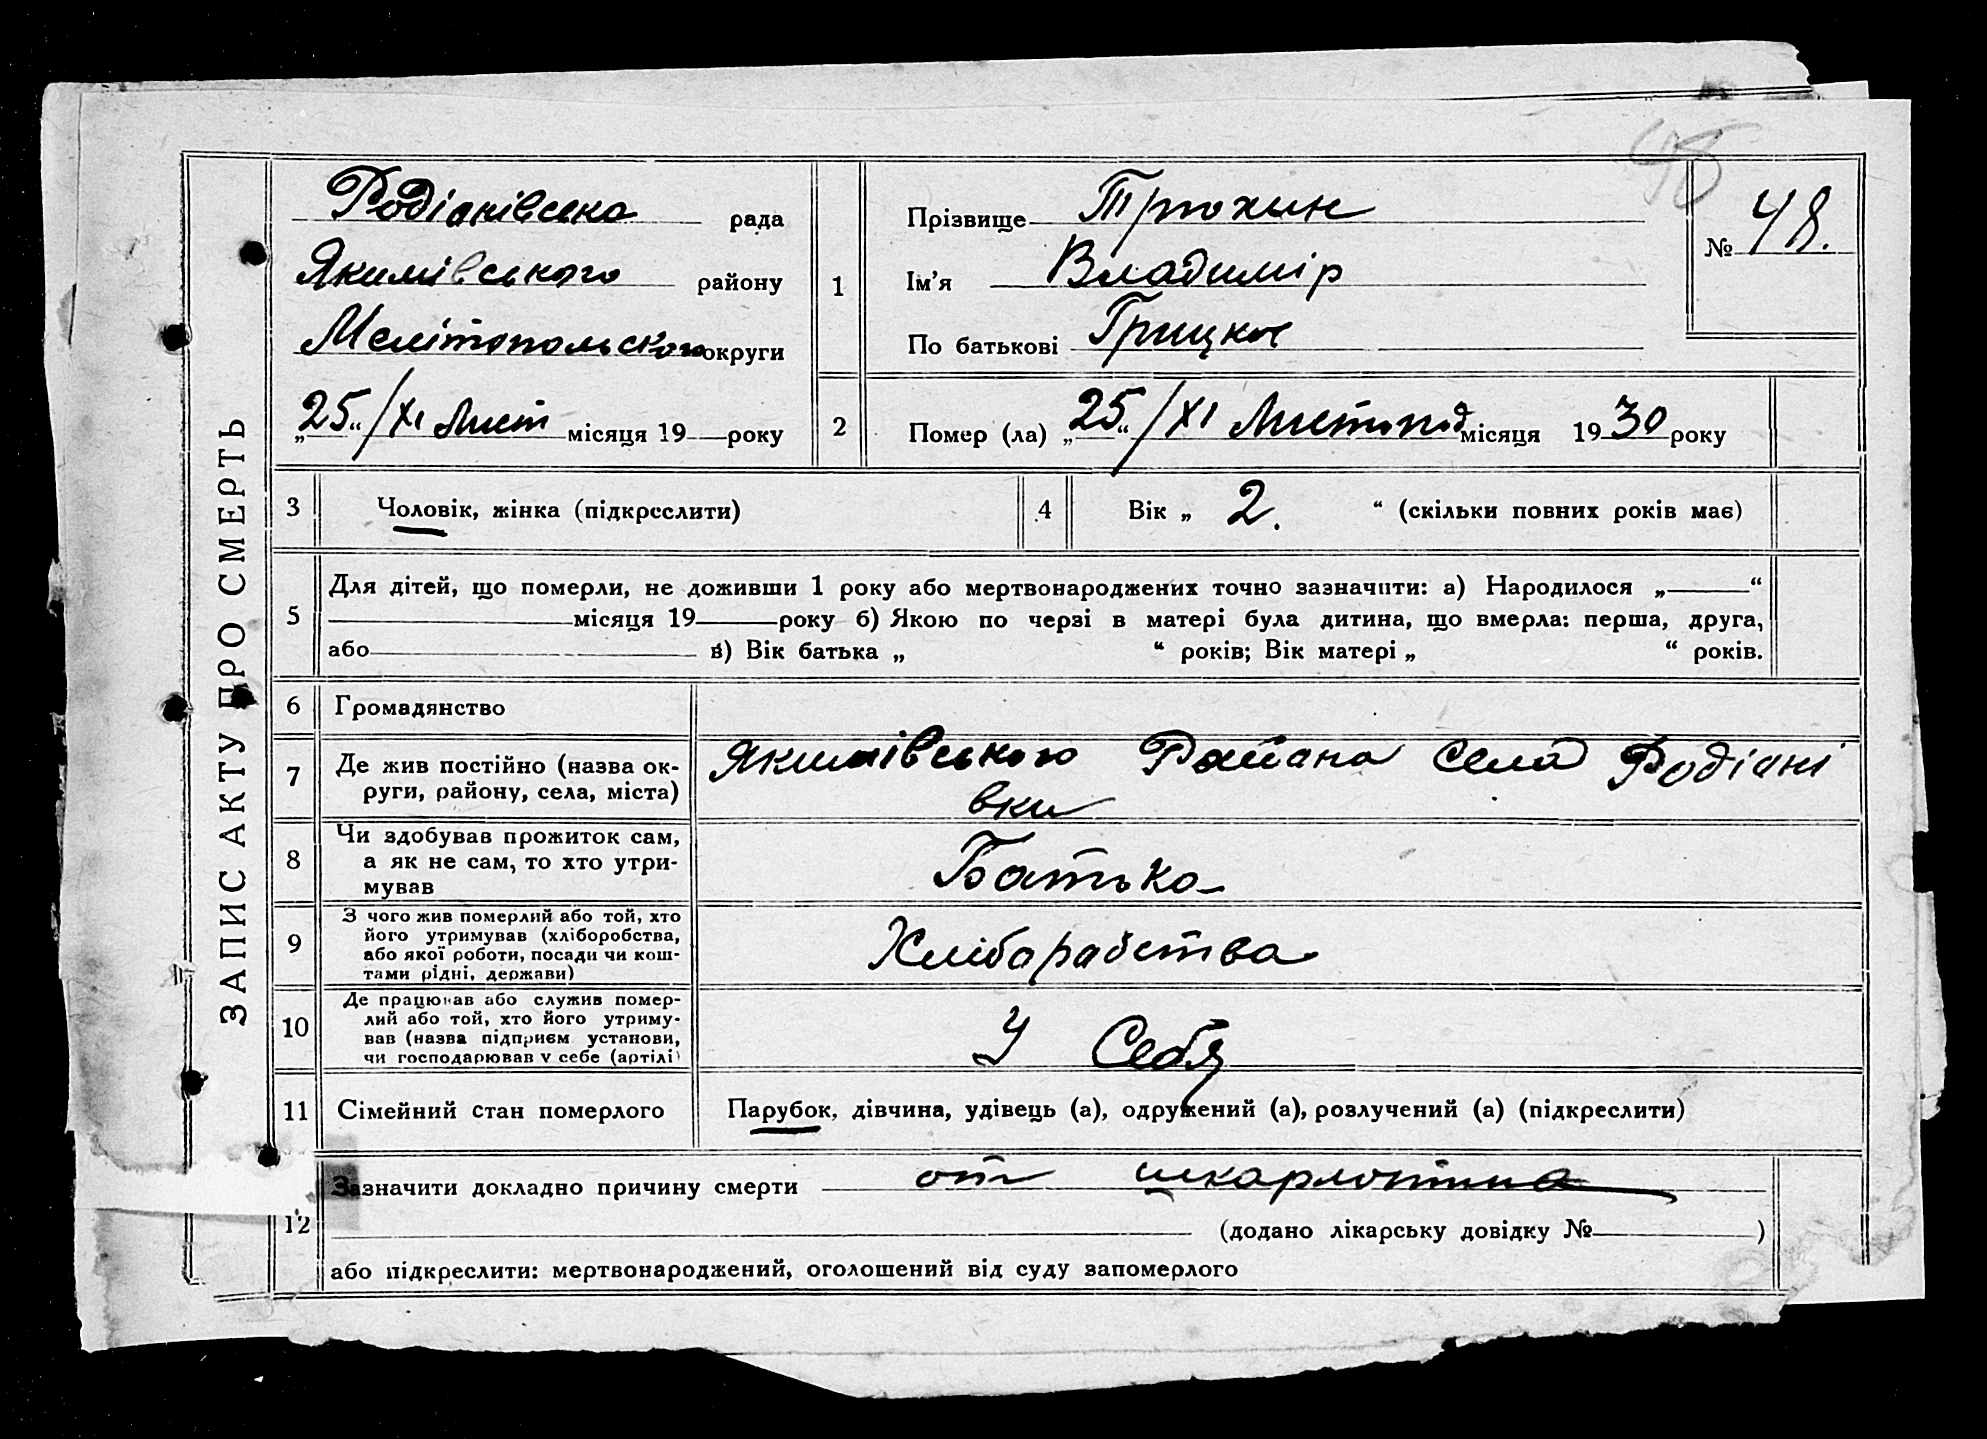 ЗАПИС АКТУ ПРО СМЕРТЬ
48
Родіанівска рада
Якимівського району
Мелітопольского округи
„25“/XI Лист місяця 19 року
1
Прізвище Трюхин
Ім’я Владимір
По батькові Грицков
№ 48.
2
Помер (ла) „25“/XI Листопад місяця 1930 року
3 Чоловік, жінка (підкреслити)
4 Вік „ 2. “ (скільки повних років має)
5 Для дітей, що померли, не доживши 1 року або мертвонароджених точно зазначити: а) Народилося „ “
місяця 19 року б) Якою по черзі в матері була дитина, що вмерла: перша, друга,
або в) Вік батька „ “ років; Вік матері „ “ років.
6 Громадянство
7 Де жив постійно (назва ок-
руги, району, села, міста)
Якимівського Района Села Родіані
вки
8 Чи здобував прожиток сам,
а як не сам, то хто утри-
мував
Батько
9 З чого жив померлий або той, хто
його утримував (хліборобства,
або якої роботи, посади чи кош-
тами рідні, держави)
Хлібарабства
10 Де працював або служив помер-
лий або той, хто його утриму-
вав (назва підприєм установи,
чи господарював у себе (артілі)
У Себя
11 Сімейний стан померлого
Парубок, дівчина, удівець (а), одружений (а), розлучений (а) (підкреслити)
12 Зазначити докладно причину смерти от шкарлотина
(додано лікарську довідку № )
або підкреслити: мертвонароджений, оголошений від суду запомерлого